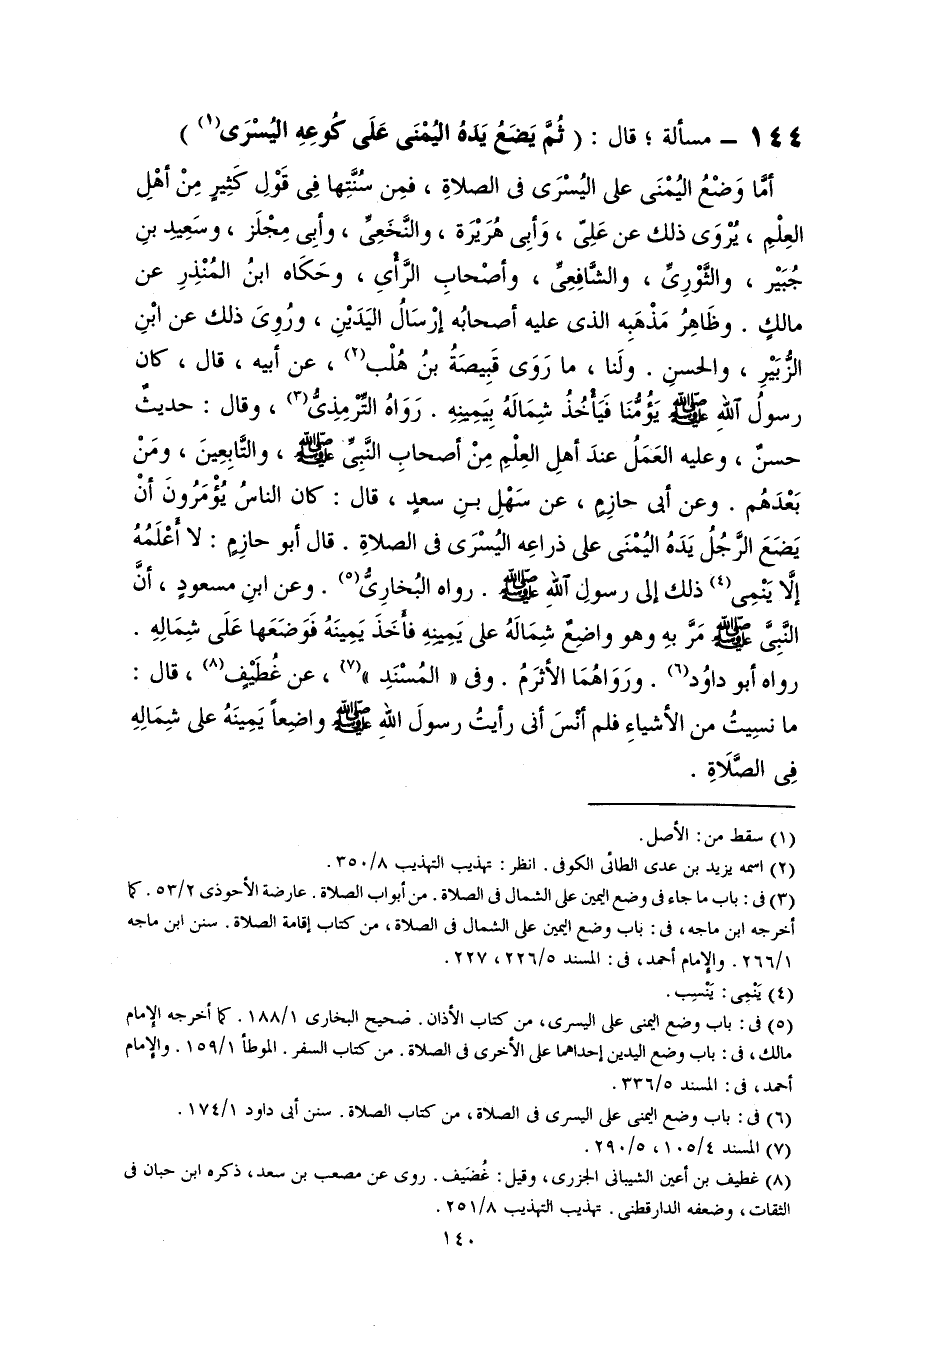 ١٤٤ – مسألة ؛ قال : ( ثُمَّ يَضَعُ يَدَهُ اليُمْنَى عَلَى كُوعِهِ اليُسْرَى(١) )
أمَّا وَضْعُ اليُمْنَى على اليُسْرَى فى الصلاةِ ، فمِن سُنَّتِها فِى قَوْلِ كَثِيرٍ مِنْ أهْلِ
العِلْمِ ، يُرْوَى ذلك عن عَلِىّ ، وَأبى هُرَيْرَة ، والنَّخَعِىِّ ، وأبى مِجْلَز ، وسَعِيدِ بنِ
جُبَيْر ، والثَّوْرِىِّ ، والشَّافِعِىِّ ، وأصْحابِ الرَّأْىِ ، وحَكَاه ابنُ المُنْذِرِ عن
مالكٍ . وظَاهِرُ مَذْهَبِه الذى عليه أصحابُه إرْسَالُ اليَدَيْنِ ، ورُوِىَ ذلك عن ابْنِ
الزُّبَيْرِ ، والحسنِ . ولَنا ، ما رَوَى قَبِيصَةُ بنُ هُلْب(٢) ، عن أبيه ، قال ، كان
رسولُ ٱللهِ ﷺ يَؤُمُّنَا فَيَأْخُذُ شِمَالَهُ بِيَمِينِهِ . رَوَاهُ التِّرْمِذِىُّ(٣) ، وقال : حديثٌ
حسنٌ ، وعليه العَمَلُ عندَ أهلِ العِلْمِ مِنْ أصحابِ النَّبِىِّ ﷺ ، والتَّابِعِينَ ، ومَنْ
بَعْدَهُم . وعن أبى حازِمٍ ، عن سَهْلِ بـنِ سعدٍ ، قال : كان الناسُ يُؤْمَرُونَ أنْ
يَضَعَ الرَّجُلُ يَدَهُ اليُمْنَى على ذراعِه اليُسْرَى فى الصلاةِ . قال أبو حازِمٍ : لا أَعْلَمُهُ
إلَّا يَنْمِى(٤) ذلك إلى رسولِ ٱللهِ ﷺ . رواه البُخارِىُّ(٥) . وعن ابنِ مسعودٍ ، أنَّ
النَّبِىَّ ﷺ مَرَّ بِهِ وهو واضِعٌ شِمَالَهُ على يَمِينِهِ فأَخَذَ يَمِينَهُ فَوَضَعَها عَلَى شِمَالِهِ .
رواه أبو داوُد(٦) . ورَوَاهُمَا الأثرَمُ . وفى « المُسْنَدِ »(٧) ، عن غُطَيْفٍ(٨) ، قال :
ما نسِيتُ من الأشياءِ فلم أنْسَ أنى رأيتُ رسولَ اللهِ ﷺ واضِعاً يَمِينَهُ على شِمَالِهِ
فِى الصَّلَاةِ .
(١) سقط من : الأصل .
(٢) اسمه يزيد بن عدى الطائى الكوفى . انظر : تهذيب التهذيب ٣٥٠/٨ .
(٣) فى : باب ما جاء فى وضع اليمين على الشمال فى الصلاة . من أبواب الصلاة . عارضة الأحوذى ٥٣/٢ . كما
أخرجه ابن ماجه ، فى : باب وضع اليمين على الشمال فى الصلاة ، من كتاب إقامة الصلاة . سنن ابن ماجه
٢٦٦/١ . والإمام أحمد ، فى : المسند ٢٢٦/٥ ، ٢٢٧ .
(٤) يَنْمِى : يَنْسِب .
(٥) فى : باب وضع اليمنى على اليسرى ، من كتاب الأذان . صحيح البخارى ١٨٨/١ . كما أخرجه الإمام
مالك ، فى : باب وضع اليدين إحداهما على الأخرى فى الصلاة . من كتاب السفر . الموطأ ١٥٩/١ . والإمام
أحمد ، فى : المسند ٣٣٦/٥ .
(٦) فى : باب وضع اليمنى على اليسرى فى الصلاة ، من كتاب الصلاة . سنن أبى داود ١٧٤/١ .
(٧) المسند ١٠٥/٤ ، ٢٩٠/٥ .
(٨) غطيف بن أعين الشيبانى الجزرى ، وقيل : غُضَيف . روى عن مصعب بن سعد ، ذكره ابن حبان فى
الثقات ، وضعفه الدارقطنى . تهذيب التهذيب ٢٥١/٨ .
١٤٠